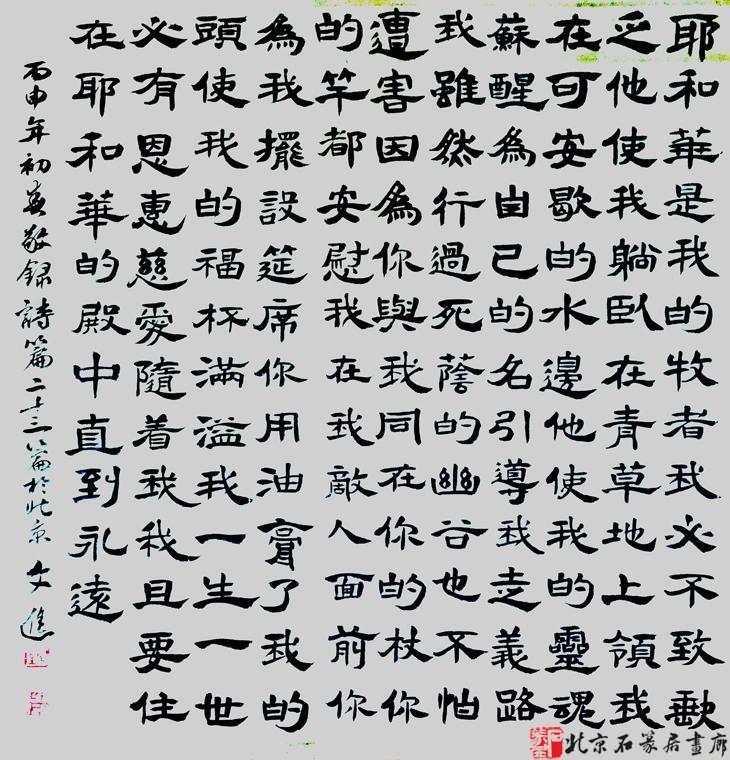 耶和華是我的牧者我必不致
乏他使我躺臥在青草地上領我
在可安歇的水邊他使我的靈魂
蘇醒為自己的名引導我走義路
我雖然行過死蔭的幽谷也不怕
遭害因為你與我同在你的杖你
的竿都安慰我在我敵人面前你
為我擺設筵席你用油膏了我的
頭使我的福杯滿溢我一生一世
必有恩惠慈愛隨着我我且要住
在耶和華的殿中直到永遠
丙申年初春敬錄詩篇二十三篇於北京 文
北京石篆居畫廊